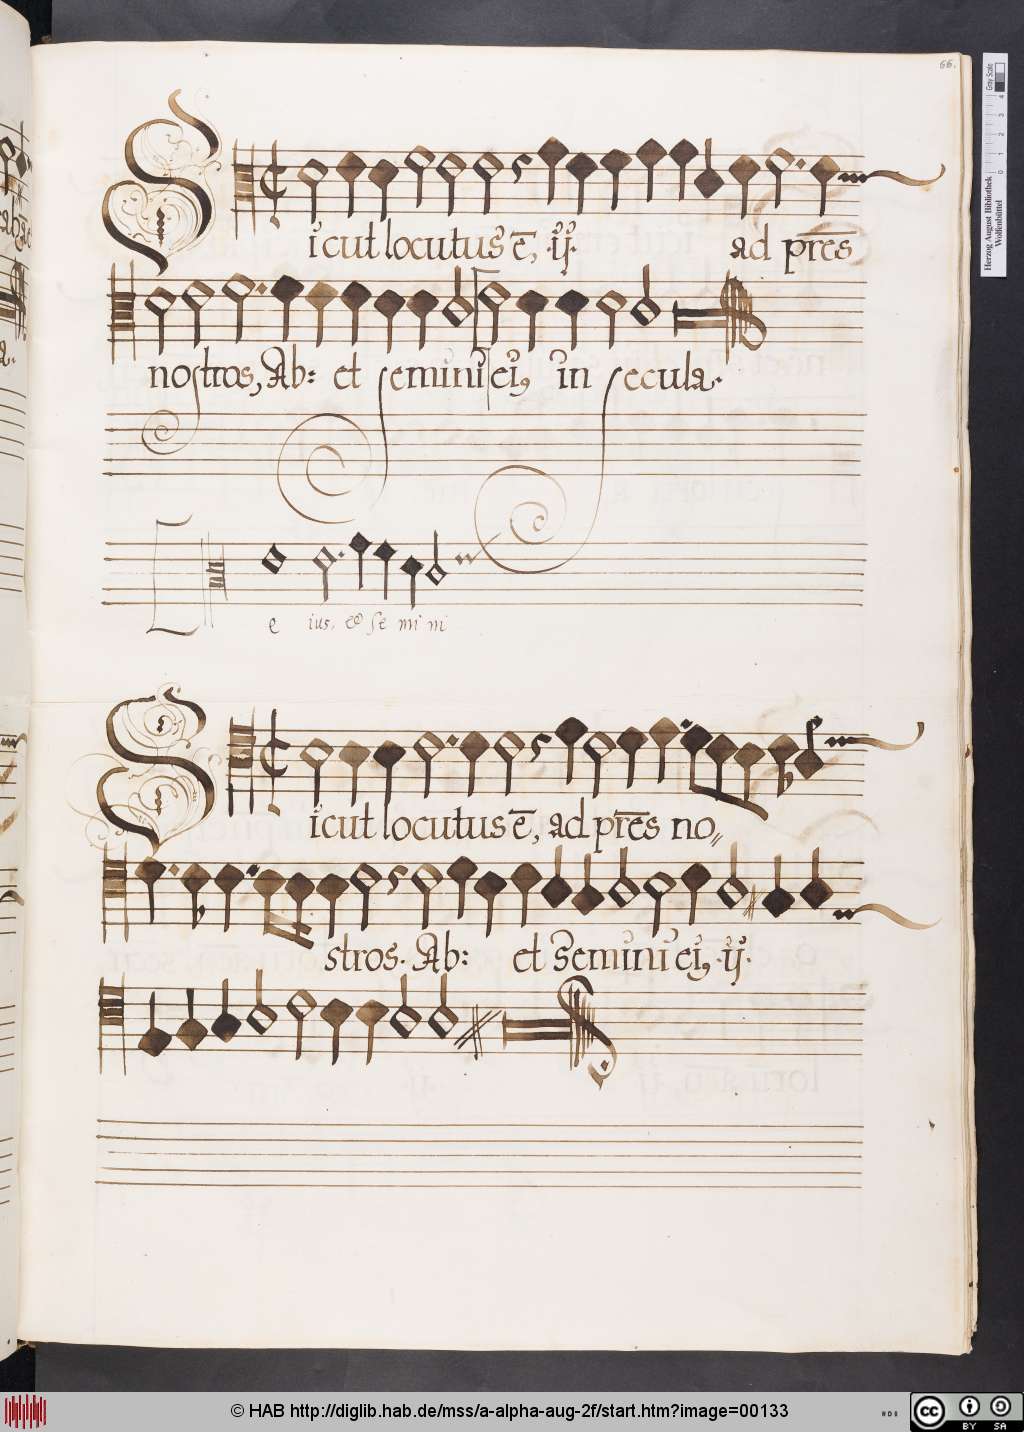 66.
Sicut locutus ē, .ij. ad pr̄es
nostros, Ab: et semini ei9 in secula.
e ius, et se mi ni
Sicut locutus ē, ad pr̄es no„
stros. Ab: et Semini ei9 .ij.
Gray Scale
0 1 2 3 4
Herzog August Bibliothek
Wolfenbüttel
© HAB http://diglib.hab.de/mss/a-alpha-aug-2f/start.htm?image=00133
cc BY SA